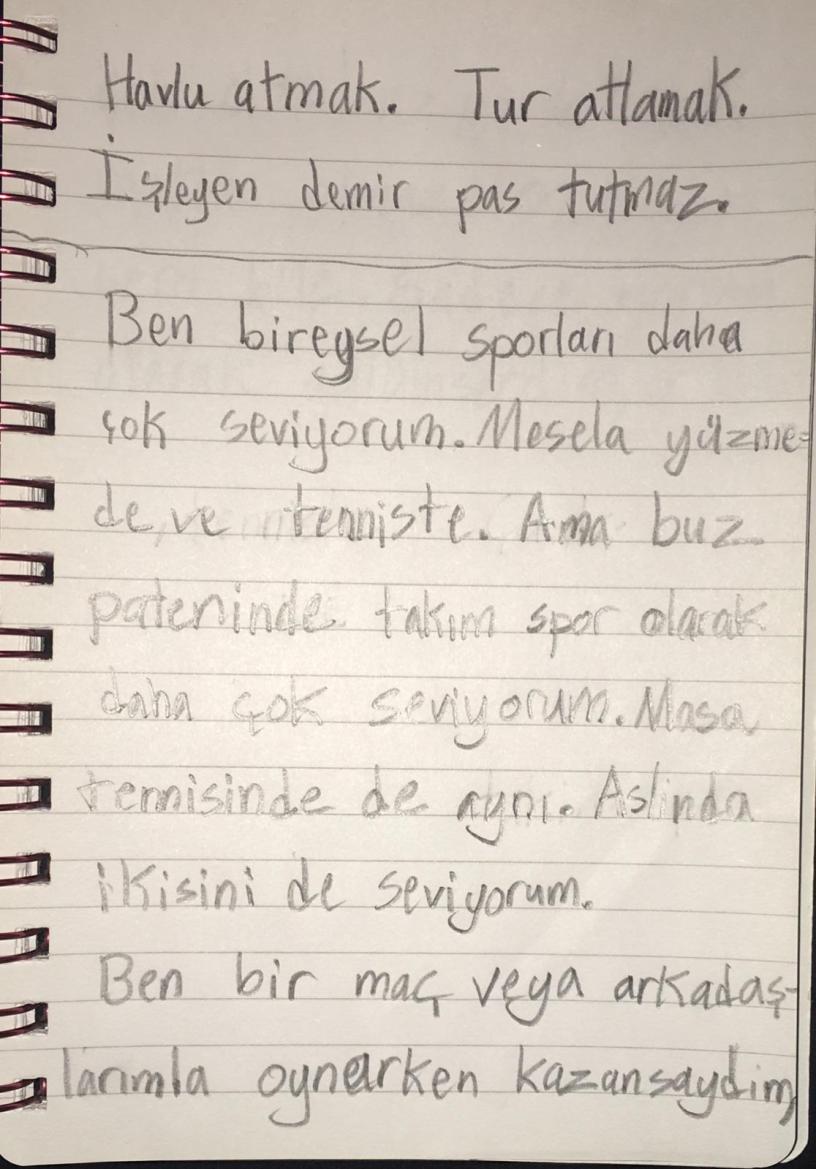 Havlu atmak. Tur atlamak.
İşleyen demir pas tutmaz.
Ben bireysel sporları daha
çok seviyorum. Mesela yüzme-
de ve tenniste. Ama buz
pateninde takım spor olarak
daha çok seviyorum. Masa
tennisinde de aynı. Aslında
ikisini de seviyorum.
Ben bir maç veya arkadaş-
larımla oynarken kazansaydım,